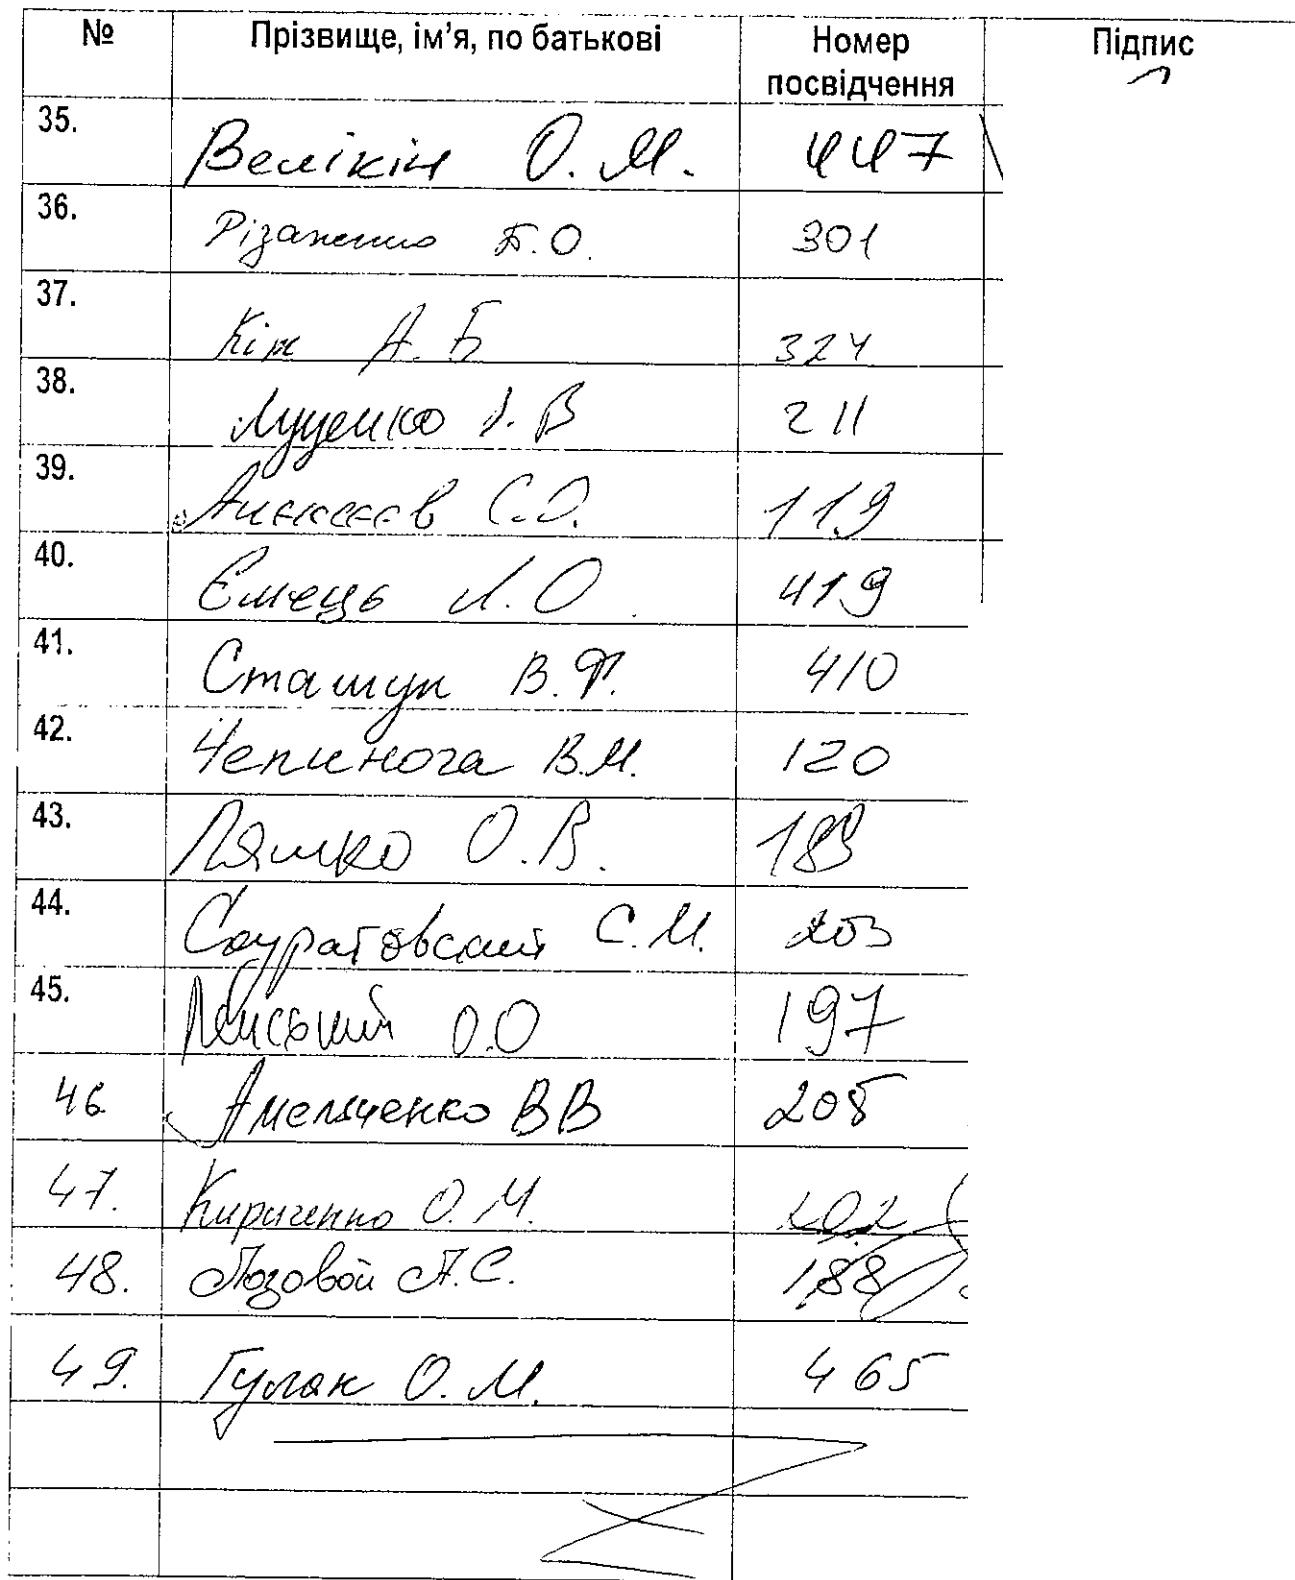 № Прізвище, ім’я, по батькові Номер посвідчення Підпис
35. Велікін О. М. 447
36. Різаненко П.О. 301
37. Кіт А. Б 324
38. Луценко І. В 211
39. Алексєєв С.О. 119
40. Ємець Л. О. 419
41. Сташук В. Ф. 410
42. Чепинога В.М. 120
43. Ляшко О. В. 183
44. Скуратовский С. М. 203
45. О.О 197
46. Амельченко В В 205
47. Кириченко О. М. 202
48. Лозовой А. С. 188
49. Гулак О. М. 465